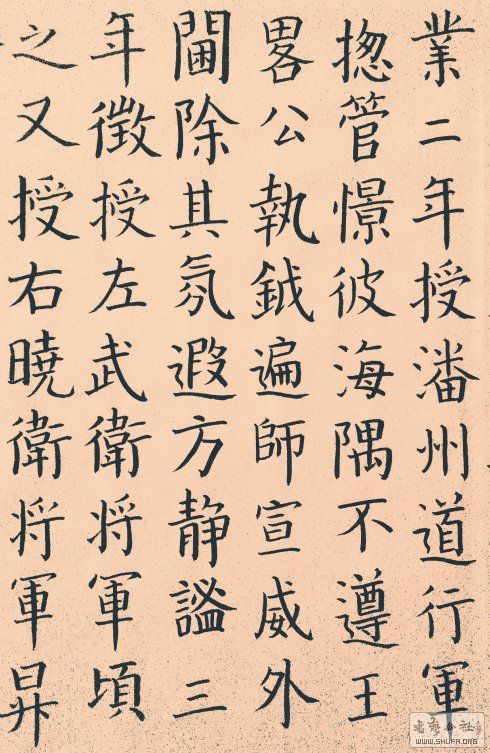 業二年授潘州道行軍
揔管憬彼海隅不遵王
畧公執鉞遍師宣威外
閫除其氛遐方静謐三
年徵授左武衛將軍頃
之又授右曉衛將軍昇
WWW.SHUFA.ORG